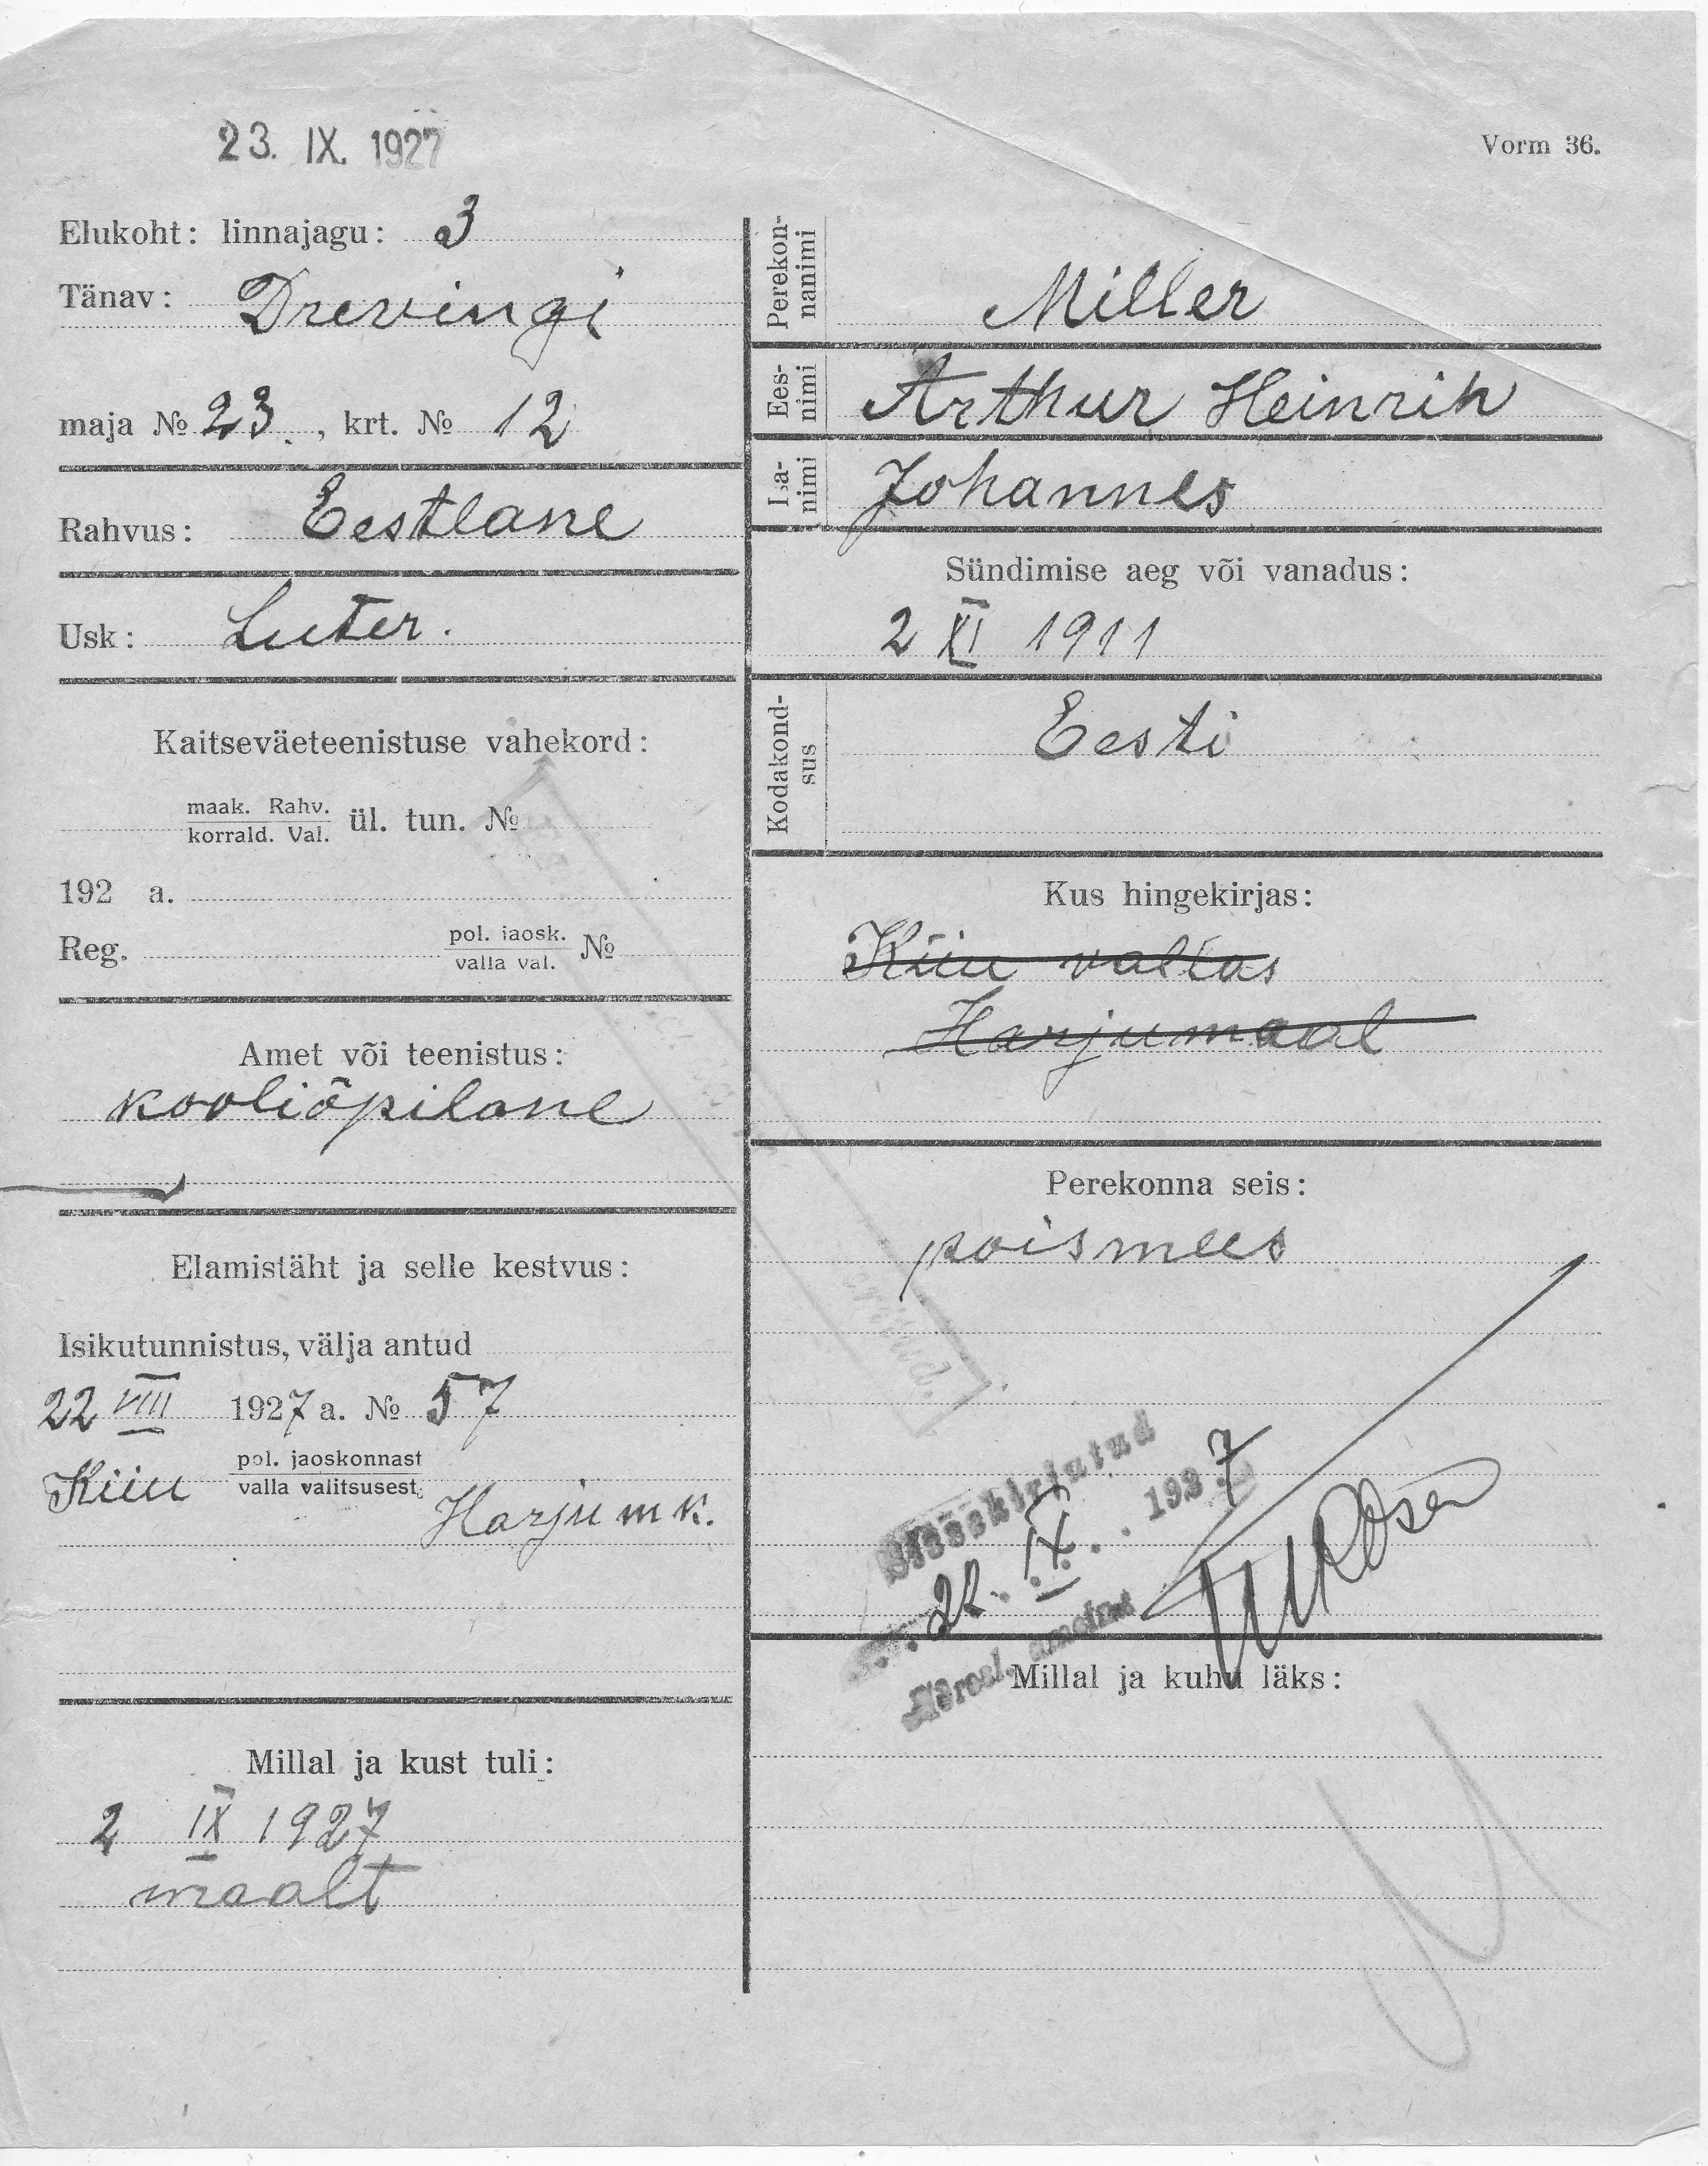 23. IX. 1927
Vorm 36.
Elukoht: linnajagu: 3
Tänav: Drevingi
maja № 23. , krt. № 12
Rahvus: Eestlane
Usk: Luter.
Kaitseväeteenistuse vahekord:
maak. Rahv.
korrald. Val. ül. tun. №
192 a.
Reg. pol. jaosk.
valla val. №
Amet või teenistus:
kooliõpilane
Elamistäht ja selle kestvus:
Isikutunnistus, välja antud
22 VIII 1927 a. № 57
Kiiu pol. jaoskonnast
valla valitsusest.
Harju mk.
Millal ja kust tuli:
2 IX 1927
maalt
Perekon-
nanimi
Miller
Ees-
nimi
Arthur Heinrih
Isa-
nimi
Johannes
Sündimise aeg või vanadus:
2 XI 1911
Kodakond-
sus
Eesti
Kus hingekirjas:
Kiiu vallas
Harjumaal
Perekonna seis:
poismees
Sissekirjutud
22. IX. . 1927
Millal ja kuhu läks: